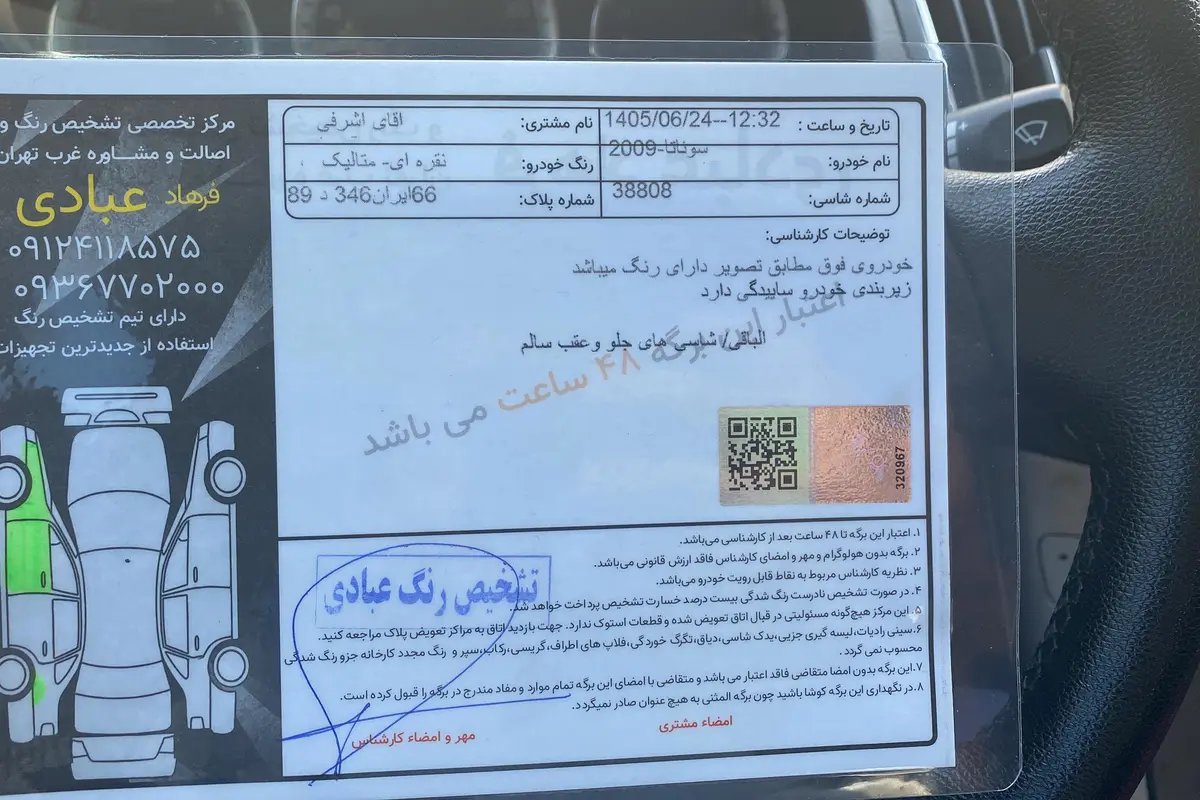 مرکز تخصصی تشخیص رنگ و
اصالت و مشـــاوره غرب تهران
فرهاد عبادی
۰۹۱۲۴۱۱۸۵۷۵
۰۹۳۶۷۷۰۲۰۰۰
دارای تیم تشخیص رنگ
استفاده از جدیدترین تجهیزات
تاریخ و ساعت : 1405/06/24--12:32
نام مشتری: اقای اشرفی
نام خودرو: سوناتا-2009
رنگ خودرو: نقره ای- متالیک ،
شماره شاسی: 38808
شماره پلاک: 66ایران346 د 89
توضیحات کارشناسی:
خودروی فوق مطابق تصویر دارای رنگ میباشد
زیربندی خودرو ساییدگی دارد
الباقی/ شاسی های جلو و عقب سالم
اعتبار این برگه ۴۸ ساعت می باشد
320967
۱. اعتبار این برگه تا ۴۸ ساعت بعد از کارشناسی می‌باشد.
۲. برگه بدون هولوگرام و مهر و امضای کارشناس فاقد ارزش قانونی می‌باشد.
۳. نظریه کارشناس مربوط به نقاط قابل رویت خودرو می‌باشد.
۴. در صورت تشخیص نادرست رنگ شدگی بیست درصد خسارت تشخیص پرداخت خواهد شد.
۵. این مرکز هیچ‌گونه مسئولیتی در قبال اتاق تعویض شده و قطعات استوک ندارد. جهت بازدید اتاق به مراکز تعویض پلاک مراجعه کنید.
۶. سینی رادیات، لیسه گیری جزیی، یدک شاسی، دیاق، تگرگ خوردگی، فلاپ های اطراف، گریسی، رکاب، سپر و رنگ مجدد کارخانه جزو رنگ شدگی
محسوب نمی گردد .
۷. این برگه بدون امضا متقاضی فاقد اعتبار می باشد و متقاضی با امضای این برگه تمام موارد و مفاد مندرج در برگه را قبول کرده است.
۸. در نگهداری این برگه کوشا باشید چون برگه المثنی به هیچ عنوان صادر نمیگردد.
تشخیص رنگ عبادی
امضاء مشتری
مهر و امضاء کارشناس